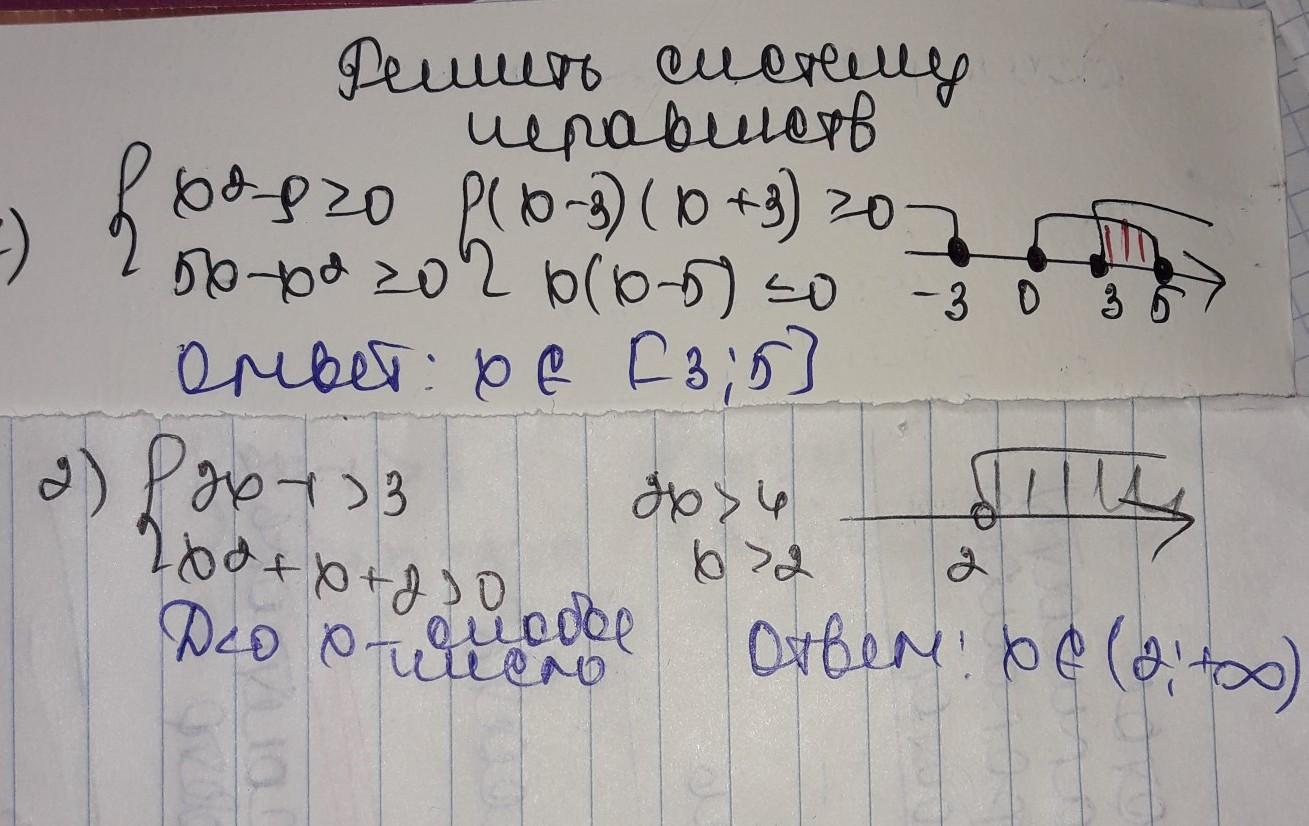 Решить систему
неравенств
) { x²-9≥0 { (x-3)(x+3)≥0
5x-x²≥0 x(x-5)≤0
-3 0 3 5
Ответ: x∈[3;5]
2) { 2x-1>3 2x>4
x²+x+2>0 x>2 2
D<0 x-любое
число
Ответ: x∈(2;+∞)